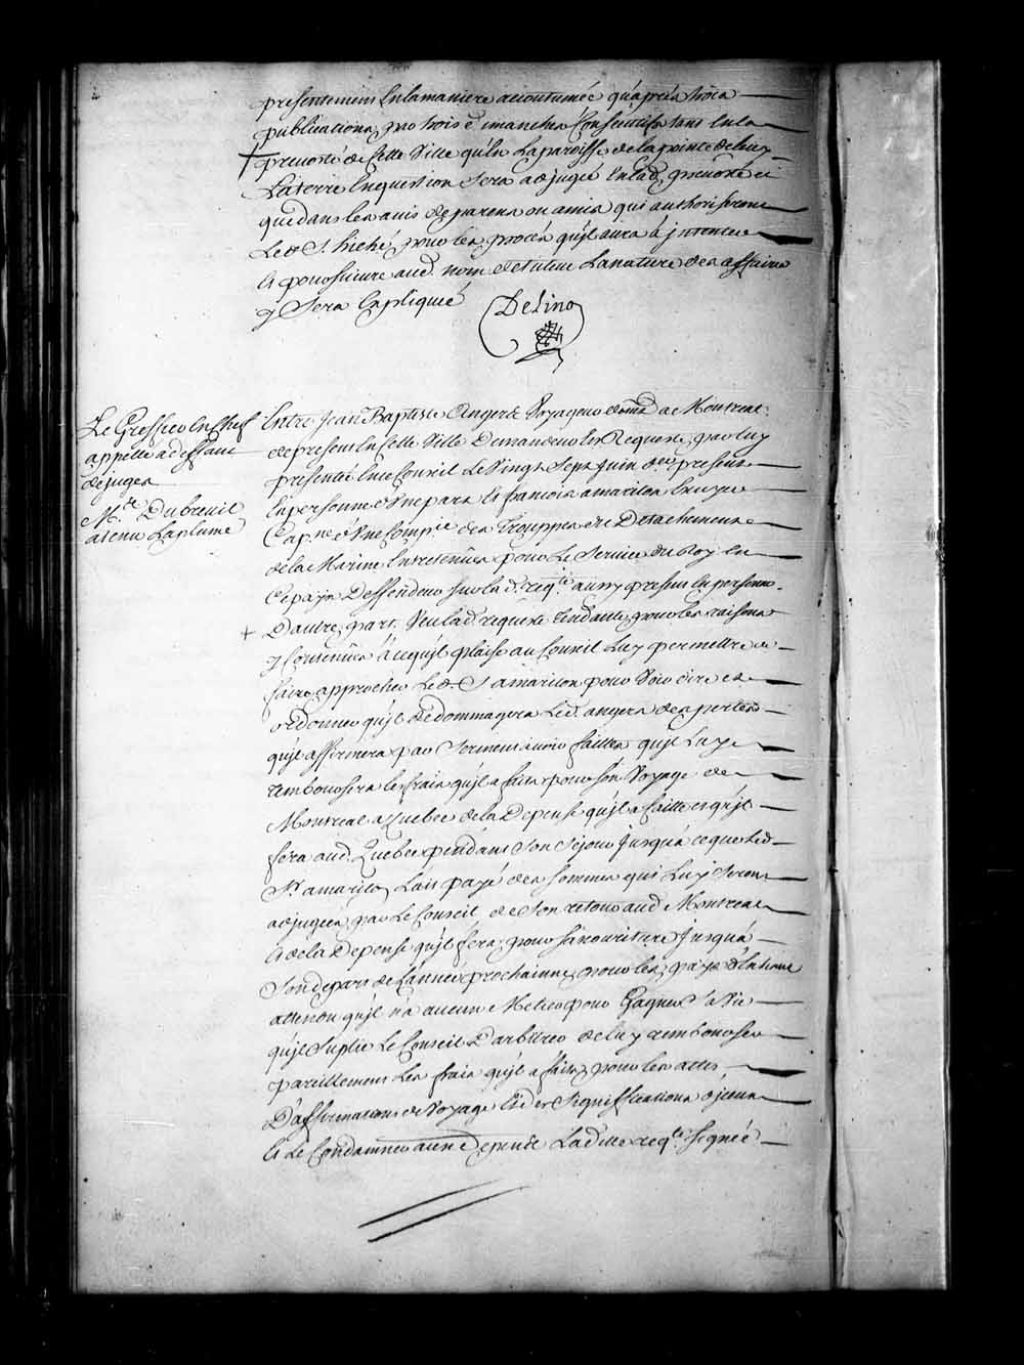 presentement En la maniere accoutumée qu'aprés trois
publications par trois dimanches Consecutifs tant En la
prevosté de Cette Ville qu'En La paroisse de la pointe de
La terre En question Sera adjugée En lad. prevosté et
que dans les avis de parens ou amis qui authoriseront
Led. S. hiché pour les procés qu'jl aura à jntenter
Et poursuivre aud. nom de tuteur La nature des affaires
y Sera Expliquée
Delino
Le Greffier En Chef
appellé a deffaut
de juges
M.e Dubreuil
a tenu La plume
Entre Jean Baptiste Angers Voyageur dem.t a Montreal
de present En Cette Ville Demandeur En Requeste par luy
presentée En ce Conseil Le Vingt Sept Juin dernier present
En personne d'Une part Et francois amariton
Cap.ne d'Une Comp.ie des Trouppes du Detachement
de la Marine Entretenües pour Le Service du Roy En
Ce pays Deffendeur Sur lad. req.te aussy present En personne
D'autre part. Veu lad. requeste Tendante pour les raisons
y Contenües a ce qu'jl plaise au Conseil Luy permettre de
faire approcher Led. S. amariton pour Voir dire et
ordonner qu'jl dédommagera Led. angers des pertes
qu'jl affirmera par Serment avoir faittes qu'jl Luy
remboursera les frais qu'jl a faits pour son Voyage de
Montreal a Quebec de la Depense qu'jl a faitte et qu'jl
fera aud. Quebec pendant Son Sejour Jusqu'a ce que Led.
S.r amariton L'ait payé des Sommes qui Luy Seront
adjugées par Le Conseil de Son retour aud. Montreal
Et de la Depense qu'jl fera pour Sa nouriture Jusqu'a
Son depart de L'année prochainne pour les pays d'En haut
attendu qu'jl n'a aucun Metier pour Gagner Sa Vie
qu'jl Suplie Le Conseil D'arbitrer de luy rembourser
pareillement Les frais qu'jl a faits pour les actes
D'affirmations de Voyage Et des Significations
Et Le Condamner aux Depens Laditte req.te Signée